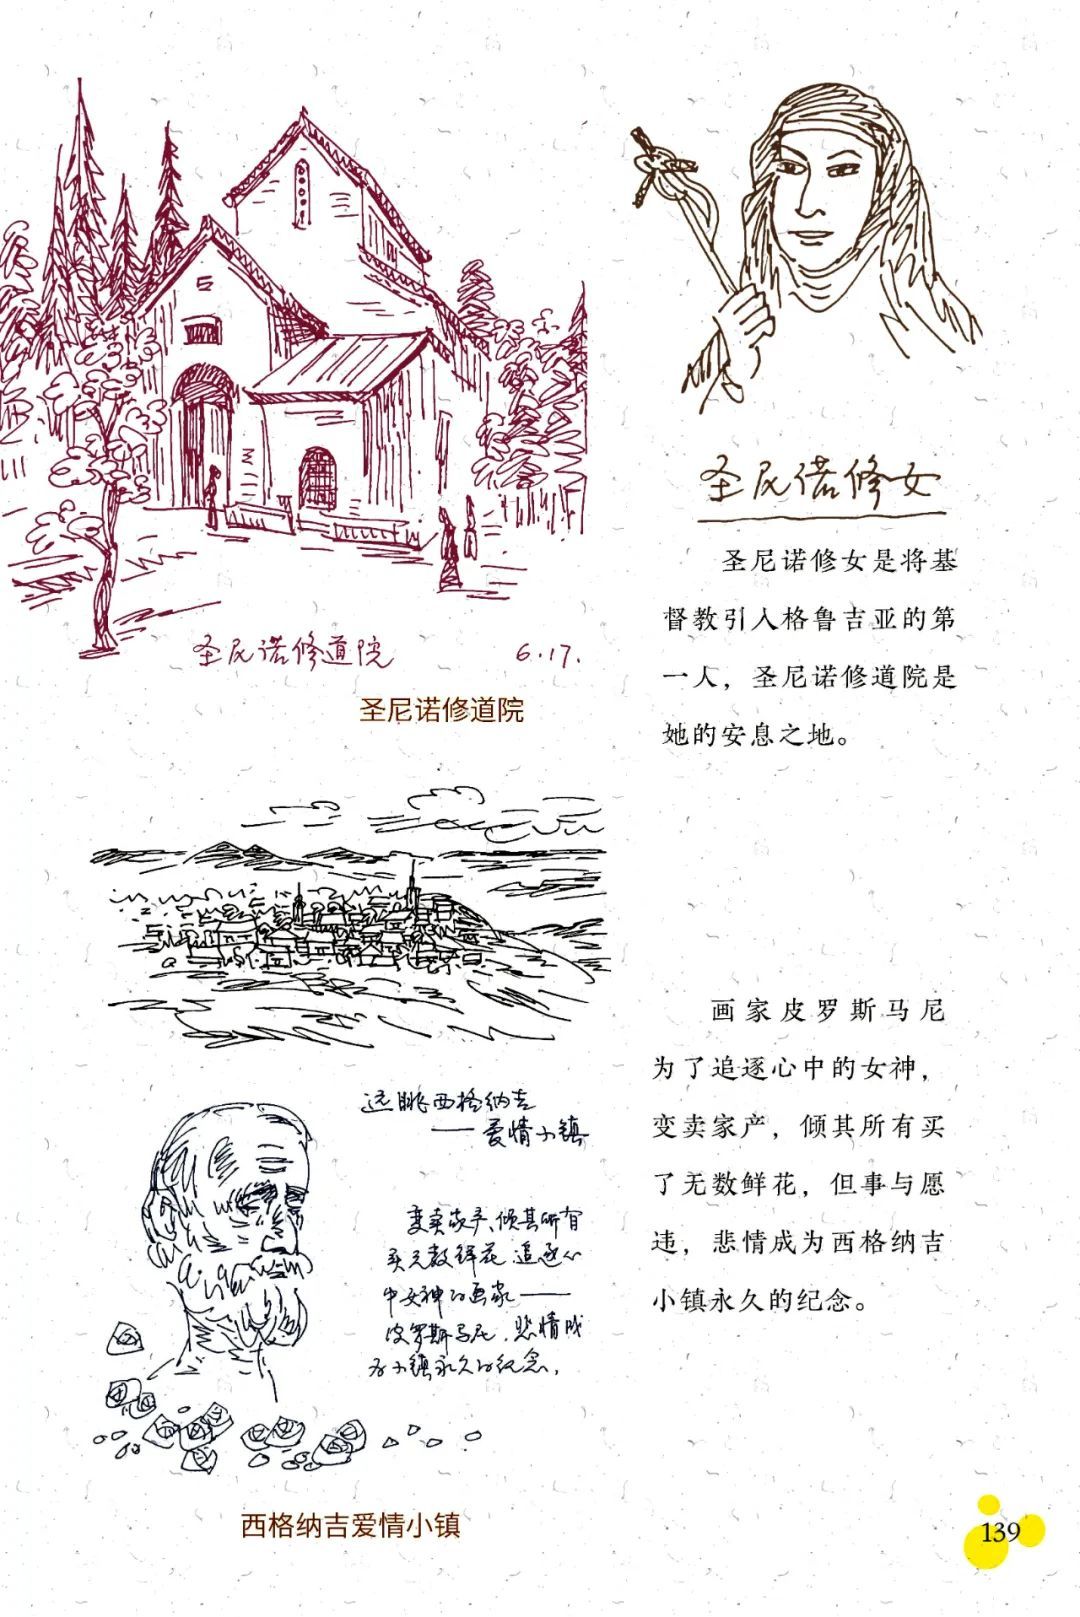 圣尼诺修女
圣尼诺修女是将基
督教引入格鲁吉亚的第
一人，圣尼诺修道院是
她的安息之地。
圣尼诺修道院 6.17.
圣尼诺修道院
远眺西格纳吉
——爱情小镇
变卖家产、倾其所有
买无数鲜花、追逐心
中女神的画家——
皮罗斯马尼，悲情成
为小镇永久的纪念。
画家皮罗斯马尼
为了追逐心中的女神，
变卖家产，倾其所有买
了无数鲜花，但事与愿
违，悲情成为西格纳吉
小镇永久的纪念。
西格纳吉爱情小镇
139